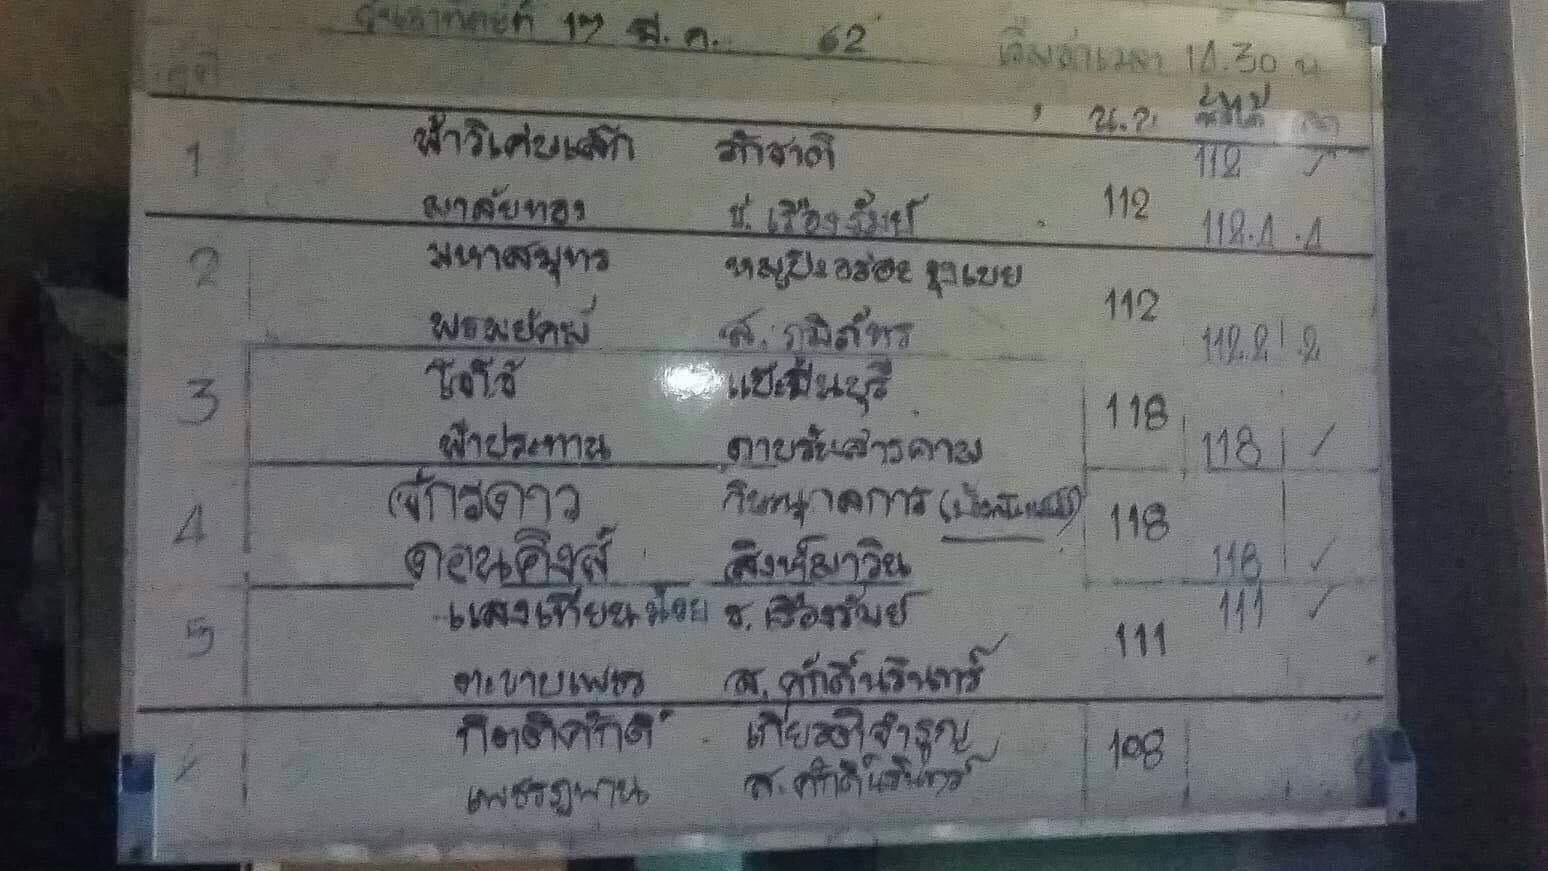 วันอาทิตย์ที่ 17 มี.ค. 62 เริ่มชกเวลา 14.30 น
คู่ที่ น.น. ชั่งได้
1 ศักชาติ 112 ✓
มาลัยทอง ช. เรืองรัมย์ 112 112.1 .1
2 มหาสมุทร หมูปิ้งอร่อยจุงเบย 112
พรพยัคฆ์ ส. ภูมิภัทร 112.2 .2
3 โชโช้ แป๊ะมีนบุรี 118
ฟ้าประทาน ดาบรันสารคาม 118 ✓
4 จักรดาว 118
ดอนคิงส์ สิงห์มาวิน 118 ✓
5 แสงเทียนน้อย ช. เรืองรัมย์ 111 111 ✓
ตะขาบเพชร ส. ศักดิ์นรินทร์
กิตติศักดิ์ เกียรติจำรูญ 108
ส. ศักดิ์นรินทร์